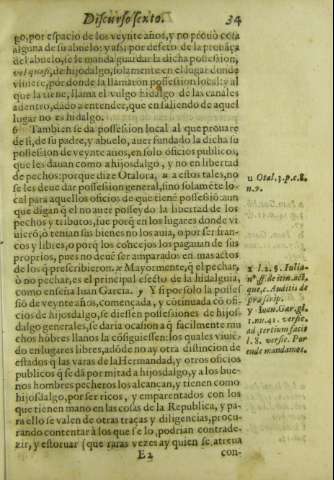 Discurso sexto. 34
go, por espacio de los veynte años, y no prouò cosa
alguna de su abuelo: y assi por defeto de la prouãça
del abuelo, se le manda guardar la dicha possession,
vel quasi, de hijodalgo, solamente en el lugar donde
viuiere, por donde la llamaron possession local: y al
que la tiene, llama el vulgo hidalgo de las canales
adentro, dado a entender, que en saliendo de aquel
lugar no es hidalgo.
6 Tambien se da possession local al que prouare
de si, de su padre, y abuelo, auer fundado la dicha su
possession de veynte años, en solo oficios publicos,
que les dauan como a hijosdalgo, y no en libertad
de pechos: porque dize Otalora, u a estos tales, no
se les deue dar possession general, sino solamẽte lo-
cal para aquellos oficios de que tiene possessiõ aun
que digan q̃ el no aure posseydo la libertad de los
pechos y tributos, fue porq̃ en los lugares donde vi
uierõ, ò tenian sus bienes no los auia, o por ser fran-
cos y libres, o porq̃ los concejos los pagauan de sus
proprios, pues no deue ser amparados en mas actos
de los q̃ prescribieron. x Mayormente, q̃ el pechar,
ò no pechar, es el principal efecto de la hidalguia,
como enseña Iuan Garcia. y Y si por solo la posses
siõ de veynte años, començada, y cõtinuada cõ ofi-
cios de hijosdalgo, se diessen possessiones de hijos-
dalgo generales, se daria ocasion a q̃ facilmente mu
chos hõbres llanos la cõsiguiessen: los quales viuiẽ-
do en lugares libres, adõde no ay otra distincion de
estados q̃ las varas de la Hermandad, y otros oficios
publicos q̃ se dã por mitad a hijosdalgo, y a los bue-
nos hombres pecheros los alcançan, y tienen como
hijosdalgo, por ser ricos, y emparentados con los
que tienen mano en las cosas de la Republica, y pa-
ra ello se valen de otras traças y diligencias, procu-
rando contentar à los que se lo, podrian contrade-
zir, y estoruar (que raras vezes ay quien se atreua
E 2 con-
u Otal. 3. p. c. 8.
n. 9.
x l. 2. §. Iulia-
nº ff. de itin. act.
que, c. Auditis de
præscrip.
y Ioan. Gar. gl.
1. nu. 41. versic.
ad tertium facit
l. 8. versic. Por
ende mandamos.